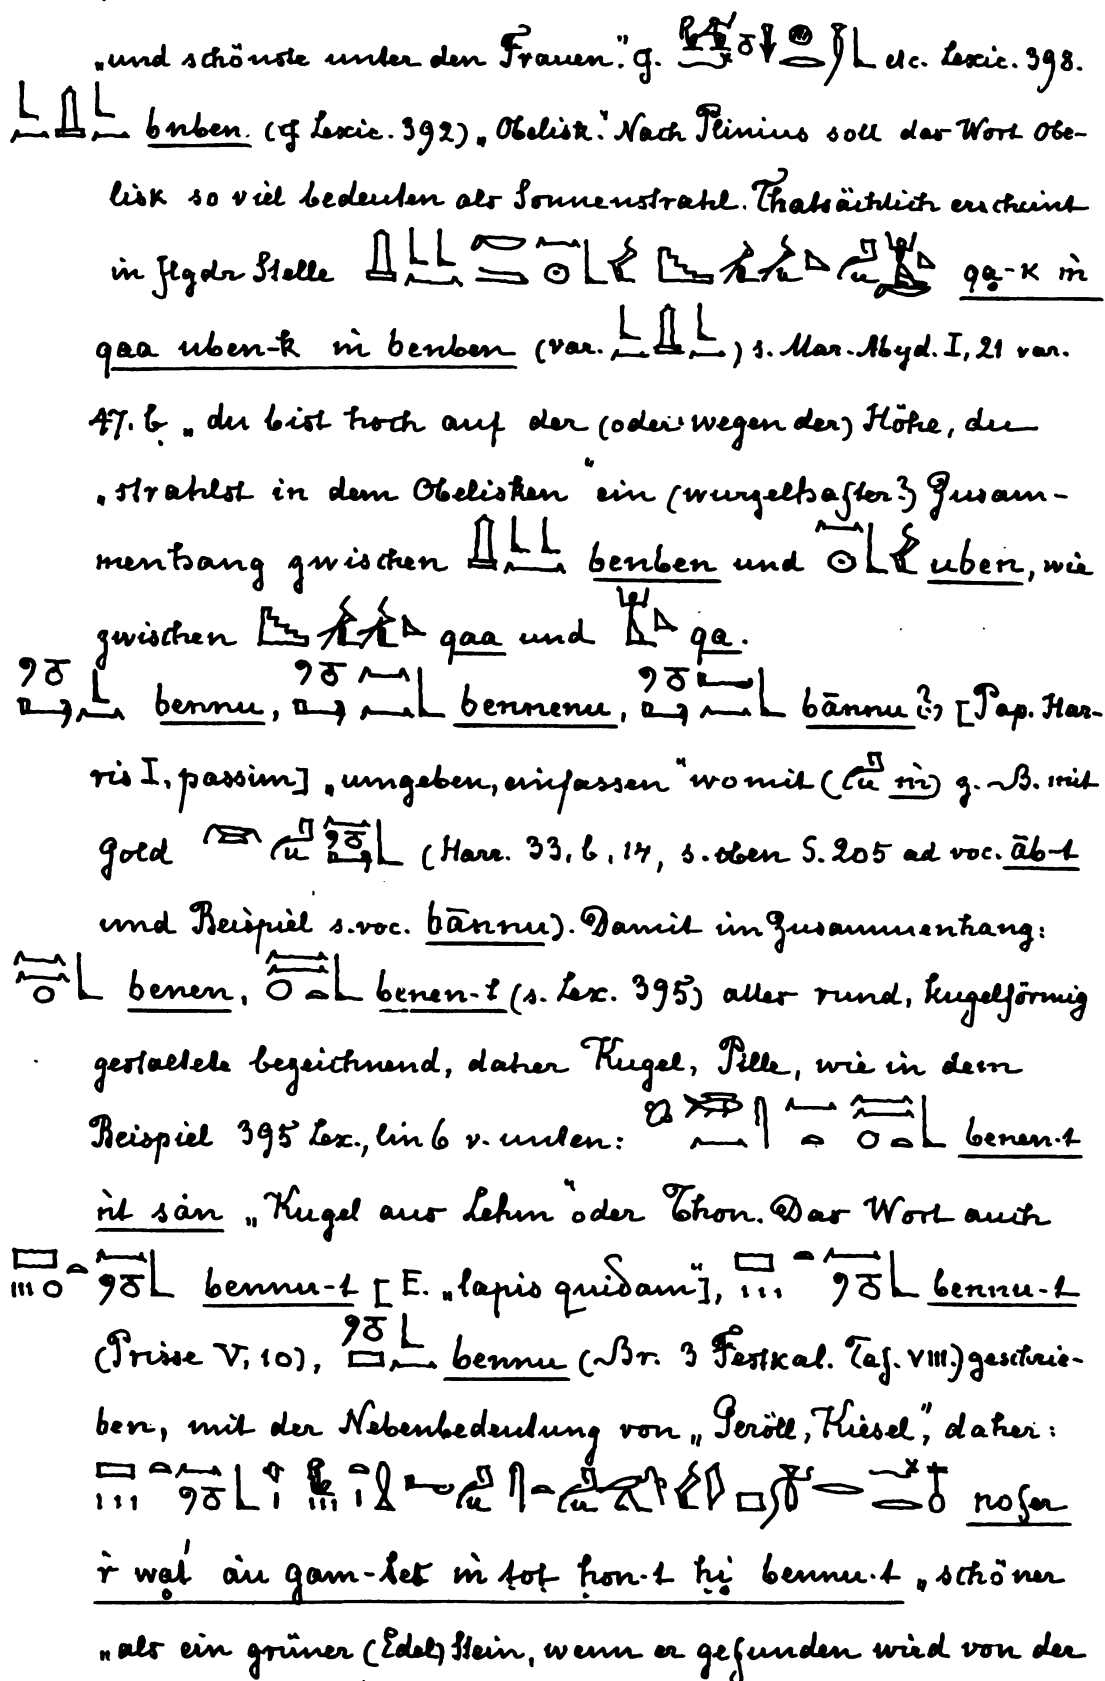 „und schönste unter den Frauen“. g. etc. Lexic. 398.
bnben. (cf Lexic. 392) „Obelisk.“ Nach Plinius soll das Wort Obe-
lisk so viel bedeuten als Sonnenstrahl. Thatsächlich erscheint
in flgdr Stelle qa̱-k m̀
qaa uben-k m̀ benben (var. ) s. Mar. Abyd. I, 21 var.
47. b. „du bist hoch auf der (oder: wegen der) Höhe, du
„strahlst in dem Obelisken“ ein (wurzelhafter?) Zusam-
menhang zwischen benben und uben, wie
zwischen qaa und qa.
bennu, bennenu, bānnu (?) [Pap. Har-
ris I, passim] „umgeben, einfassen“ womit ( m̀) z. B. mit
Gold (Harr. 33, b, 14, s. oben S. 205 ad voc. āb-t
und Beispiel s. voc. bānnu). Damit im Zusammenhang:
benen, benen-t (s. Lex. 395) alles rund, kugelförmig
gestaltete bezeichnend, daher Kugel, Pille, wie in dem
Beispiel 395 Lex., lin 6 v. unten: benen.t
ǹt sȧn „Kugel aus Lehm“ oder Thon. Das Wort auch
bennu-t [E. „lapis quidam“], bennu-t
(Prisse V, 10), bennu (Br. 3 Festkal. Taf. VIII.) geschrie-
ben, mit der Nebenbedeutung von „Geröll, Kiesel“, daher:
nofer
r̀ wat́ ȧu gam-tet m̀ tot hon-t hi bennu-t „schöner
„als ein grüner (Edel) Stein, wenn er gefunden wird von der